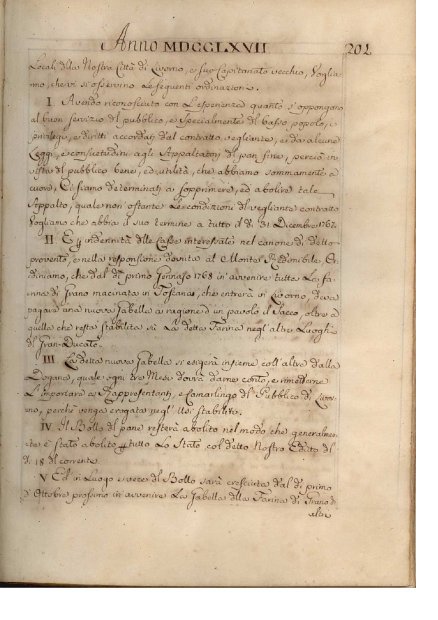 Anno MDCCLXVII 202
Locali della Nostra Città di Livorno, e suo Capitanato vecchio, Voglia-
mo, che vi si osservino le seguenti ordinazioni.
I Avendo riconosciuto con l'esperienza quanto s'oppongano
al buon servizio del pubblico, e specialmente del basso popolo, i
privilegi, e diritti accordati dal contratto vegliante, e da alcune
Leggi, e consuetudini agli Appaltatori del pan fine, perciò in
vista del pubblico bene, ed utilità, che abbiamo sommamente a
cuore, Ci siamo determinati a sopprimere, ed abolire tale
Appalto, quale non ostante le condizioni del vegliante contratto
Vogliamo che abbia il suo termine a tutto il dì 31 Dicembre 1767.
II E p indennità delle Casse interessate nel canone di detto
provento, e nella responsione dovuta al Monte Redimibile Or-
diniamo, che dal dì primo Gennajo 1768 in avvenire tutta la fa-
rina di Grano macinata in Toscana, che entrerà in Livorno, deva
pagare una nuova Gabella a ragione d'un paolo il Sacco, oltre a
quella che resta stabilita su la detta Farina negl'altri Luoghi
del Gran-Ducato.
III La detta nuova Gabella si esigerà insieme coll'altre dalla
Dogana, quale ogni tre Mesi dovrà darne conto, e rimetterne
l'importare a' Rappresentanti, e Camarlingo del Pubblico di Livor-
no, perchè venga erogata negl'Usi stabiliti.
IV Il Bollo del pane resterà abolito nel modo che generalmen-
te è stato abolito p tutto lo Stato col detto Nostro Editto del
dì 18 del corrente.
V Ed in Luogo, e vece del Bollo sarà cresciuta dal dì primo
d'Ottobre prossimo in avvenire la Gabella della Farina di Grano di
altre